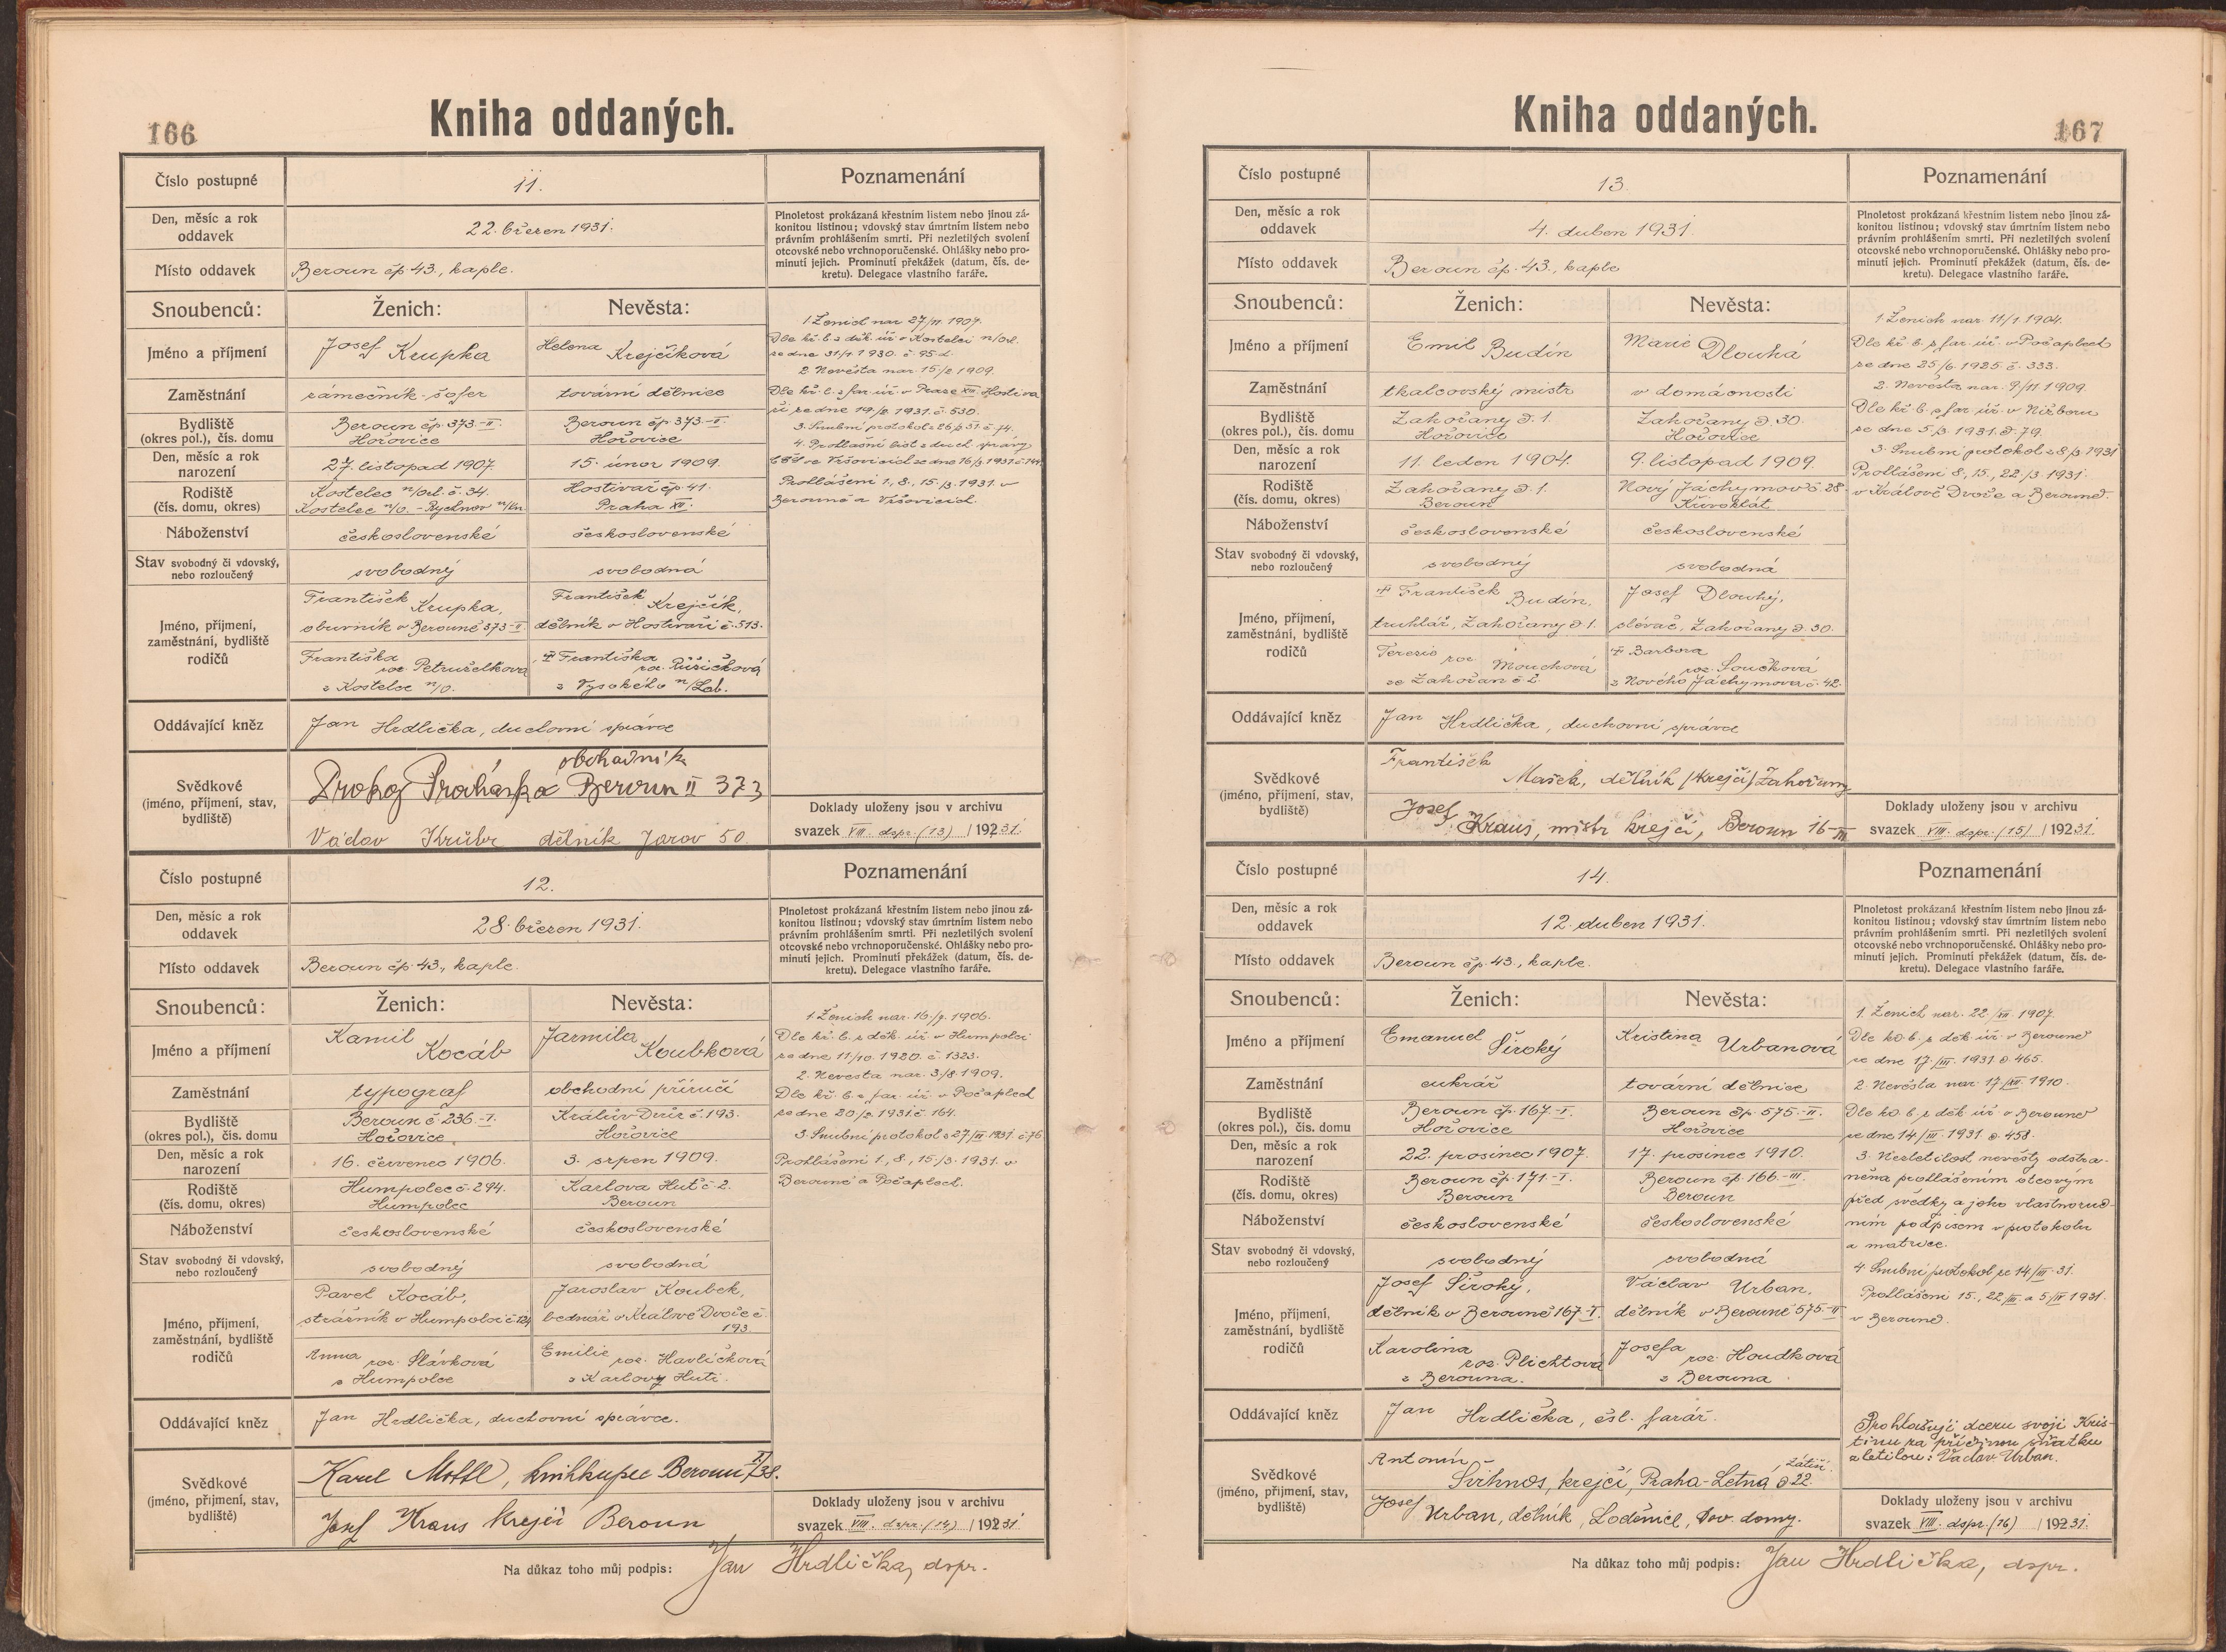 166
Kniha oddaných.
Číslo postupné
11.
Poznamenání
Den, měsíc a rok
oddavek
22. březen 1931.
Plnoletost prokázaná křestním listem nebo jinou zá-
konitou listinou; vdovský stav úmrtním listem nebo
právním prohlášením smrti. Při nezletilých svolení
otcovské nebo vrchnoporučenské. Ohlášky nebo pro-
minutí jejich. Prominutí překážek (datum, čís. de-
kretu). Delegace vlastního faráře.
Místo oddavek
Beroun čp. 43., kaple.
Snoubenců:
Ženich:
Nevěsta:
Jméno a příjmení
Josef Krupka
Helena Krejčíková
Zaměstnání
zámečník-šofer
tovární dělnice
Bydliště
(okres pol.), čís. domu
Beroun čp. 373.-II.
Hořovice
Beroun čp. 373.-II.
Hořovice
Den, měsíc a rok
narození
27. listopad 1907.
15. únor 1909.
Rodiště
(čís. domu, okres)
Kostelec n/Orl. č. 34.
Kostelec n/O. - Rychnov n/Kn.
Hostivař čp. 41.
Praha XII.
Náboženství
československé
československé
Stav svobodný či vdovský,
nebo rozloučený
svobodný
svobodná
Jméno, příjmení,
zaměstnání, bydliště
rodičů
František Krupka,
obuvník v Berouně 373-II.
František Krejčík,
dělník v Hostivaři č. 513.
Františka
roz. Petruželková
z Kostelce n/O.
Františka
roz. Růžičková
z Vysokého n/Lab.
1. Ženich nar. 27/11 1907.
Dle kř. l. z děk. úř. v Kostelci n/Orl.
ze dne 31/1 1930. č. 95 d.
2. Nevěsta nar. 15/2 1909.
Dle kř. l. z far. úř. v Praze XII Hostiva
ři ze dne 19/2 1931. č. 530.
3. Snubní protokol z 26/2 31 č. 74.
4. Prohlašní list z duch. správy
CČS ve Vršovicích ze dne 16/3. 1931. č. 144.
Prohlášeni 1., 8., 15./3. 1931. v
Berouně a Vršovicích.
Oddávající kněz
Jan Hrdlička, duchovní správce
Svědkové
(jméno, příjmení, stav,
bydliště)
obchodník
Prokop Procházka Beroun II 373
Václav dělník Jarov 50.
Doklady uloženy jsou v archivu
svazek VIII. dspr. (13) /1931.
Číslo postupné
12.
Poznamenání
Den, měsíc a rok
oddavek
28. březen 1931.
Plnoletost prokázaná křestním listem nebo jinou zá-
konitou listinou; vdovský stav úmrtním listem nebo
právním prohlášením smrti. Při nezletilých svolení
otcovské nebo vrchnoporučenské. Ohlášky nebo pro-
minutí jejich. Prominutí překážek (datum, čís. de-
kretu). Delegace vlastního faráře.
Místo oddavek
Beroun čp. 43., kaple.
Snoubenců:
Ženich:
Nevěsta:
Jméno a příjmení
Kamil Kocáb
Jarmila Koubková
Zaměstnání
typograf
obchodní příručí
Bydliště
(okres pol.), čís. domu
Beroun č. 236.-I.
Hořovice
Králův Dvůr č. 193.
Hořovice
Den, měsíc a rok
narození
16. červenec 1906.
3. srpen 1909.
Rodiště
(čís. domu, okres)
Humpolec č. 294.
Humpolec
Karlova Huť č. 2.
Beroun
Náboženství
československé
československé
Stav svobodný či vdovský,
nebo rozloučený
svobodný
svobodná
Jméno, příjmení,
zaměstnání, bydliště
rodičů
Pavel Kocáb,
strážník v Humpolci č. 124
Jaroslav Koubek,
bednář v Králově Dvoře č.
193.
Anna roz. Slávková
z Humpolce
Emilie roz. Havlíčková
z Karlovy Huti.
1. Ženich nar. 16./7. 1906.
Dle kř. l. z děk. úř. v Humpolci
ze dne 11/10. 1920. č. 1323.
2. Nevěsta nar. 3./8. 1909.
Dle kř. l. z far. úř. v Počaplech
ze dne 20/2. 1931 č. 164.
3. Snubní protokol z 27/II. 1931. č. 76.
Prohlášeni 1., 8., 15./3. 1931. v
Berouně a Počaplech.
Oddávající kněz
Jan Hrdlička, duchovní správce.
Svědkové
(jméno, příjmení, stav,
bydliště)
Karel Mottl, knihkupec Beroun I/38.
Josef Kraus krejčí Beroun
Doklady uloženy jsou v archivu
svazek VIII. dspr. (14) /1931.
Na důkaz toho můj podpis: Jan Hrdlička, dspr.
167
Kniha oddaných.
Číslo postupné
13.
Poznamenání
Den, měsíc a rok
oddavek
4. duben 1931.
Plnoletost prokázaná křestním listem nebo jinou zá-
konitou listinou; vdovský stav úmrtním listem nebo
právním prohlášením smrti. Při nezletilých svolení
otcovské nebo vrchnoporučenské. Ohlášky nebo pro-
minutí jejich. Prominutí překážek (datum, čís. de-
kretu). Delegace vlastního faráře.
Místo oddavek
Beroun čp. 43., kaple
Snoubenců:
Ženich:
Nevěsta:
Jméno a příjmení
Emil Budín
Marie Dlouhá
Zaměstnání
tkalcovský mistr
v domácnosti
Bydliště
(okres pol.), čís. domu
Zahořany č. 1.
Hořovice
Zahořany č. 30.
Hořovice
Den, měsíc a rok
narození
11. leden 1904.
9. listopad 1909.
Rodiště
(čís. domu, okres)
Zahořany č. 1.
Beroun
Nový Jáchymov č. 28.
Křivoklát
Náboženství
československé
československé
Stav svobodný či vdovský,
nebo rozloučený
svobodný
svobodná
Jméno, příjmení,
zaměstnání, bydliště
rodičů
František Budín,
truhlář, Zahořany č. 1.
Josef Dlouhý,
slévač, Zahořany č. 30.
Terezie roz. Mouchová
ze Zahořan č. 2.
Barbora
roz. Součková
z Nového Jáchymova č. 42.
1. Ženich nar. 11/1. 1904.
Dle kř. l. z far. úř. v Počaplech
ze dne 25/6. 1925. č. 333.
2. Nevěsta nar. 9/11. 1909.
Dle kř. l. z far. úř. v Nižboru
ze dne 5/3. 1931. č. 79.
3. Snubní protokol z 8/3. 1931
Prohlášeni 8., 15., 22/3. 1931.
v Králově Dvoře a Berouně.
Oddávající kněz
Jan Hrdlička, duchovní správce
Svědkové
(jméno, příjmení, stav,
bydliště)
František
Mašek, dělník /krejčí/ Zahořany
Josef Kraus, mistr krejčí, Beroun 16-III
Doklady uloženy jsou v archivu
svazek VIII. dspr. (15) /1931.
Číslo postupné
14.
Poznamenání
Den, měsíc a rok
oddavek
12. duben 1931.
Plnoletost prokázaná křestním listem nebo jinou zá-
konitou listinou; vdovský stav úmrtním listem nebo
právním prohlášením smrti. Při nezletilých svolení
otcovské nebo vrchnoporučenské. Ohlášky nebo pro-
minutí jejich. Prominutí překážek (datum, čís. de-
kretu). Delegace vlastního faráře.
Místo oddavek
Beroun čp. 43., kaple.
Snoubenců:
Ženich:
Nevěsta:
Jméno a příjmení
Emanuel Široký
Kristina Urbanová
Zaměstnání
cukrář
tovární dělnice
Bydliště
(okres pol.), čís. domu
Beroun čp. 167.-I.
Hořovice
Beroun čp. 575.-II.
Hořovice
Den, měsíc a rok
narození
22. prosinec 1907.
17. prosinec 1910.
Rodiště
(čís. domu, okres)
Beroun čp. 171.-I.
Beroun
Beroun čp. 166.-III.
Beroun
Náboženství
československé
československé
Stav svobodný či vdovský,
nebo rozloučený
svobodný
svobodná
Jméno, příjmení,
zaměstnání, bydliště
rodičů
Josef Široký,
dělník v Berouně 167-I.
Václav Urban,
dělník v Berouně 575-II
Karolina
roz. Plichtová
z Berouna.
Josefa
roz. Houdková
z Berouna
1. Ženich nar. 22./XII. 1907.
Dle kř. l. z děk. úř. v Berouně
ze dne 17./III. 1931 č. 465.
2. Nevěsta nar. 17./XII. 1910.
Dle kř. l. z děk. úř. v Berouně
ze dne 14/III. 1931 č. 458.
3. Nezletilost nevěsty odstra-
něna prohlášením otcovým
před svědky a jeho vlastnoruč-
ním podpisem v protokolu
a matrice.
4. Snubní protokol ze 14/III. 31.
Prohlášeni 15., 22/III. a 5/IV 1931.
v Berouně.
Oddávající kněz
Jan Hrdlička, čsl. farář.
Prohlašuji dceru svoji Kris-
tinu za příčinou sňatku
zletilou: Václav Urban.
Svědkové
(jméno, příjmení, stav,
bydliště)
Antonín
Švihnos, krejčí, Praha-Letná č 22.
Josef Urban, dělník, Loděnice, Tov. domy.
Doklady uloženy jsou v archivu
svazek VIII. dspr. (16) /1931.
Na důkaz toho můj podpis: Jan Hrdlička, dspr.